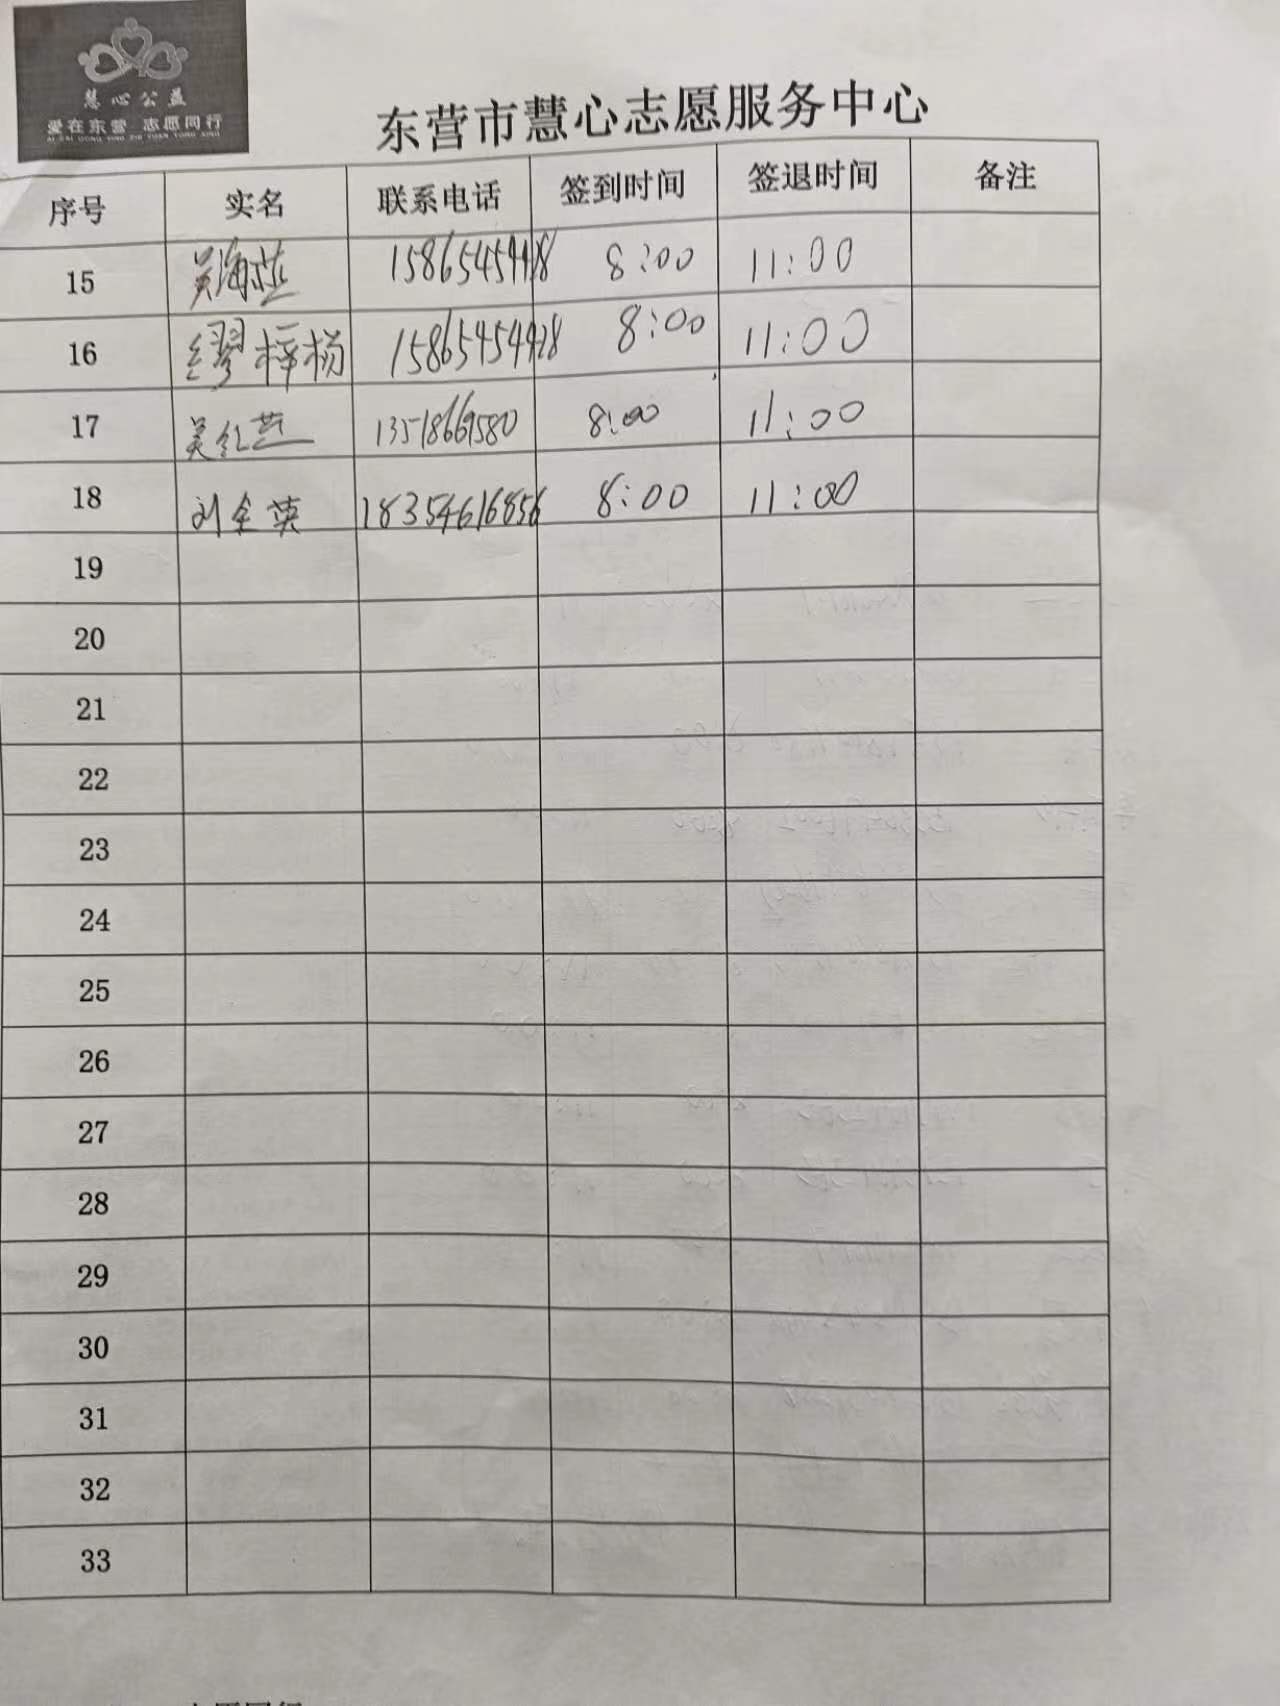 慧心公益
爱在东营 志愿同行
AI ZAI DONG YING ZHI YUAN TONG XING
东营市慧心志愿服务中心
序号 实名 联系电话 签到时间 签退时间 备注
15 吴海燕 15865454428 8:00 11:00
16 缪梓杨 15865454428 8:00 11:00
17 吴红燕 13518669580 8:00 11:00
18 刘金英 18354616856 8:00 11:00
19
20
21
22
23
24
25
26
27
28
29
30
31
32
33